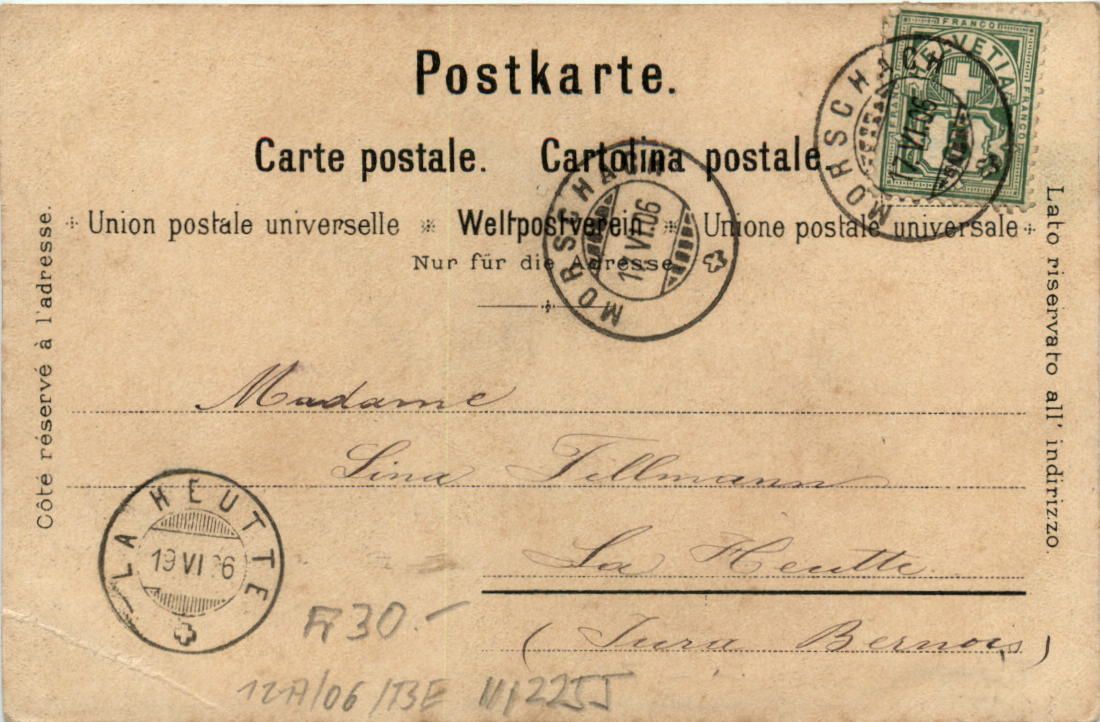 Postkarte.
Carte postale. Cartolina postale.
Union postale universelle * Weltpostverein * Unione postale universale
Nur für die Adresse
Côté réservé à l'adresse.
Lato riservato all' indirizzo.
FRANCO
HELVETIA
FRANCO
FRANCO
MORSCHACH
17 VI.06
MORSCHACH
18 VI.06
Madame
Lina Tillmann
La Heutte
(Jura Bernois)
LA HEUTTE
19 VI 06
Fr 30.-
12A/06/BE